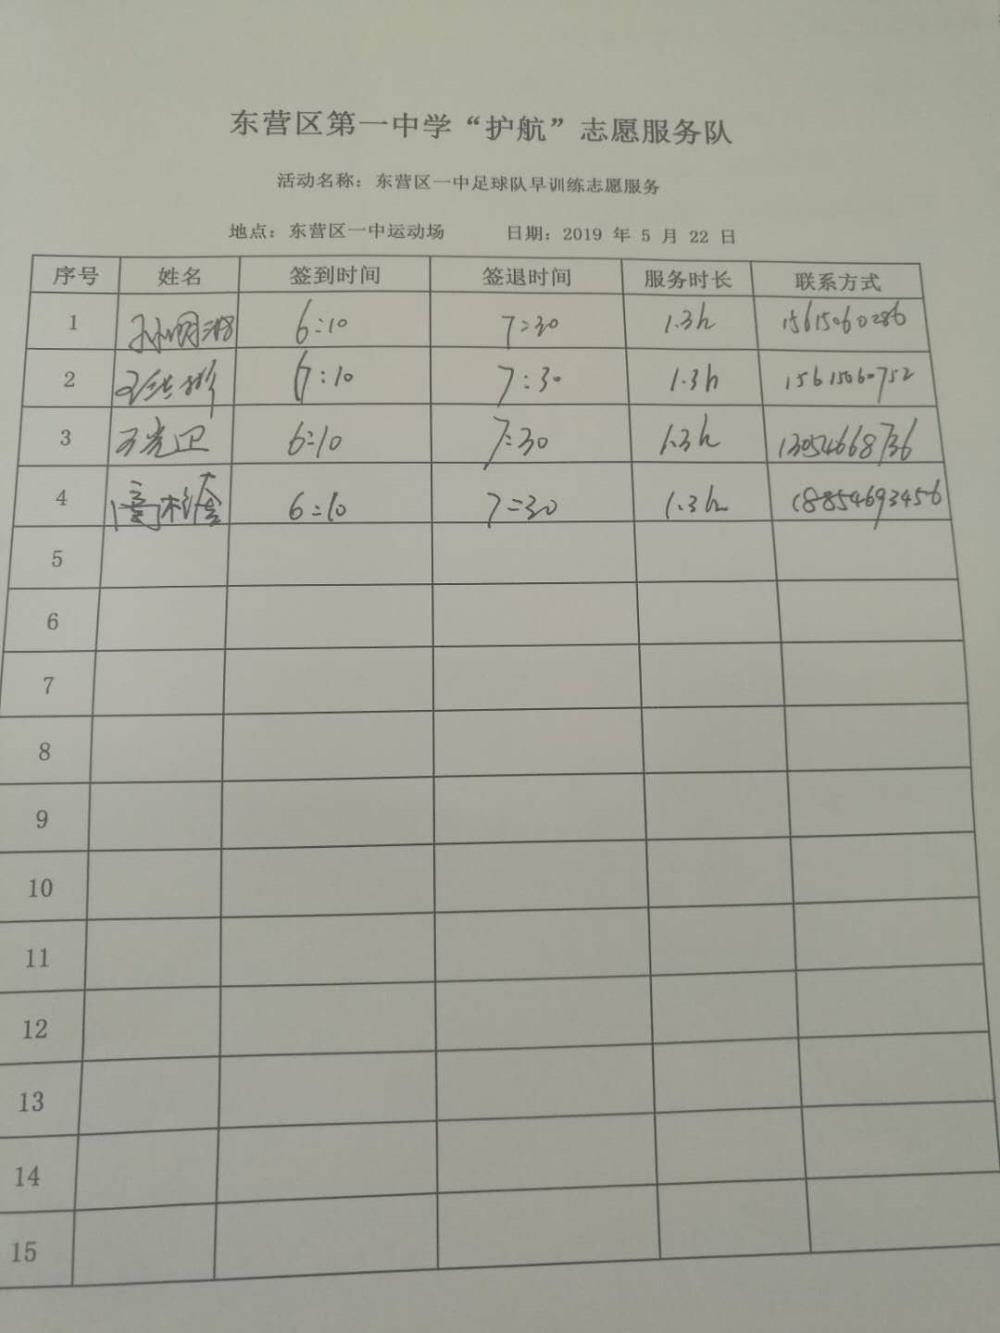 东营区第一中学“护航”志愿服务队
活动名称：东营区一中足球队早训练志愿服务
地点：东营区一中运动场 日期：2019 年 5 月 22 日
序号 姓名 签到时间 签退时间 服务时长 联系方式
1 孙明湖 6:10 7:30 1.3h 15615060286
2 6:10 7:30 1.3h 15615060752
3 王光卫 6:10 7:30 1.3h 13054668736
4 6:10 7:30 1.3h 18854693456
5
6
7
8
9
10
11
12
13
14
15